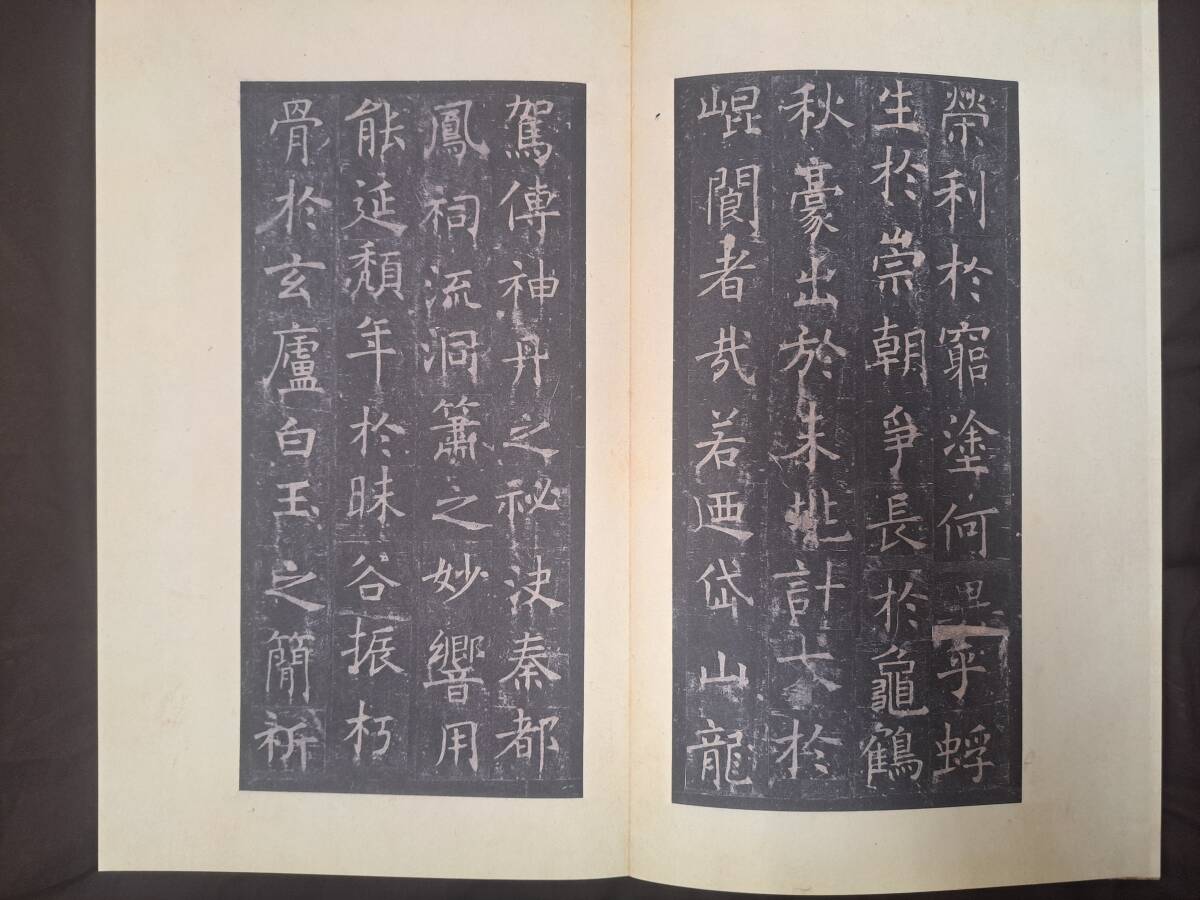 榮利於窮塗何異乎蜉
生於崇朝爭長於龜鶴
秋豪出於未兆計大於
崐閬者哉若迺岱山龍
駕傳神丹之祕決秦都
鳳祠流洞簫之妙響用
能延頹年於昧谷振朽
骨於玄廬白玉之簡祈